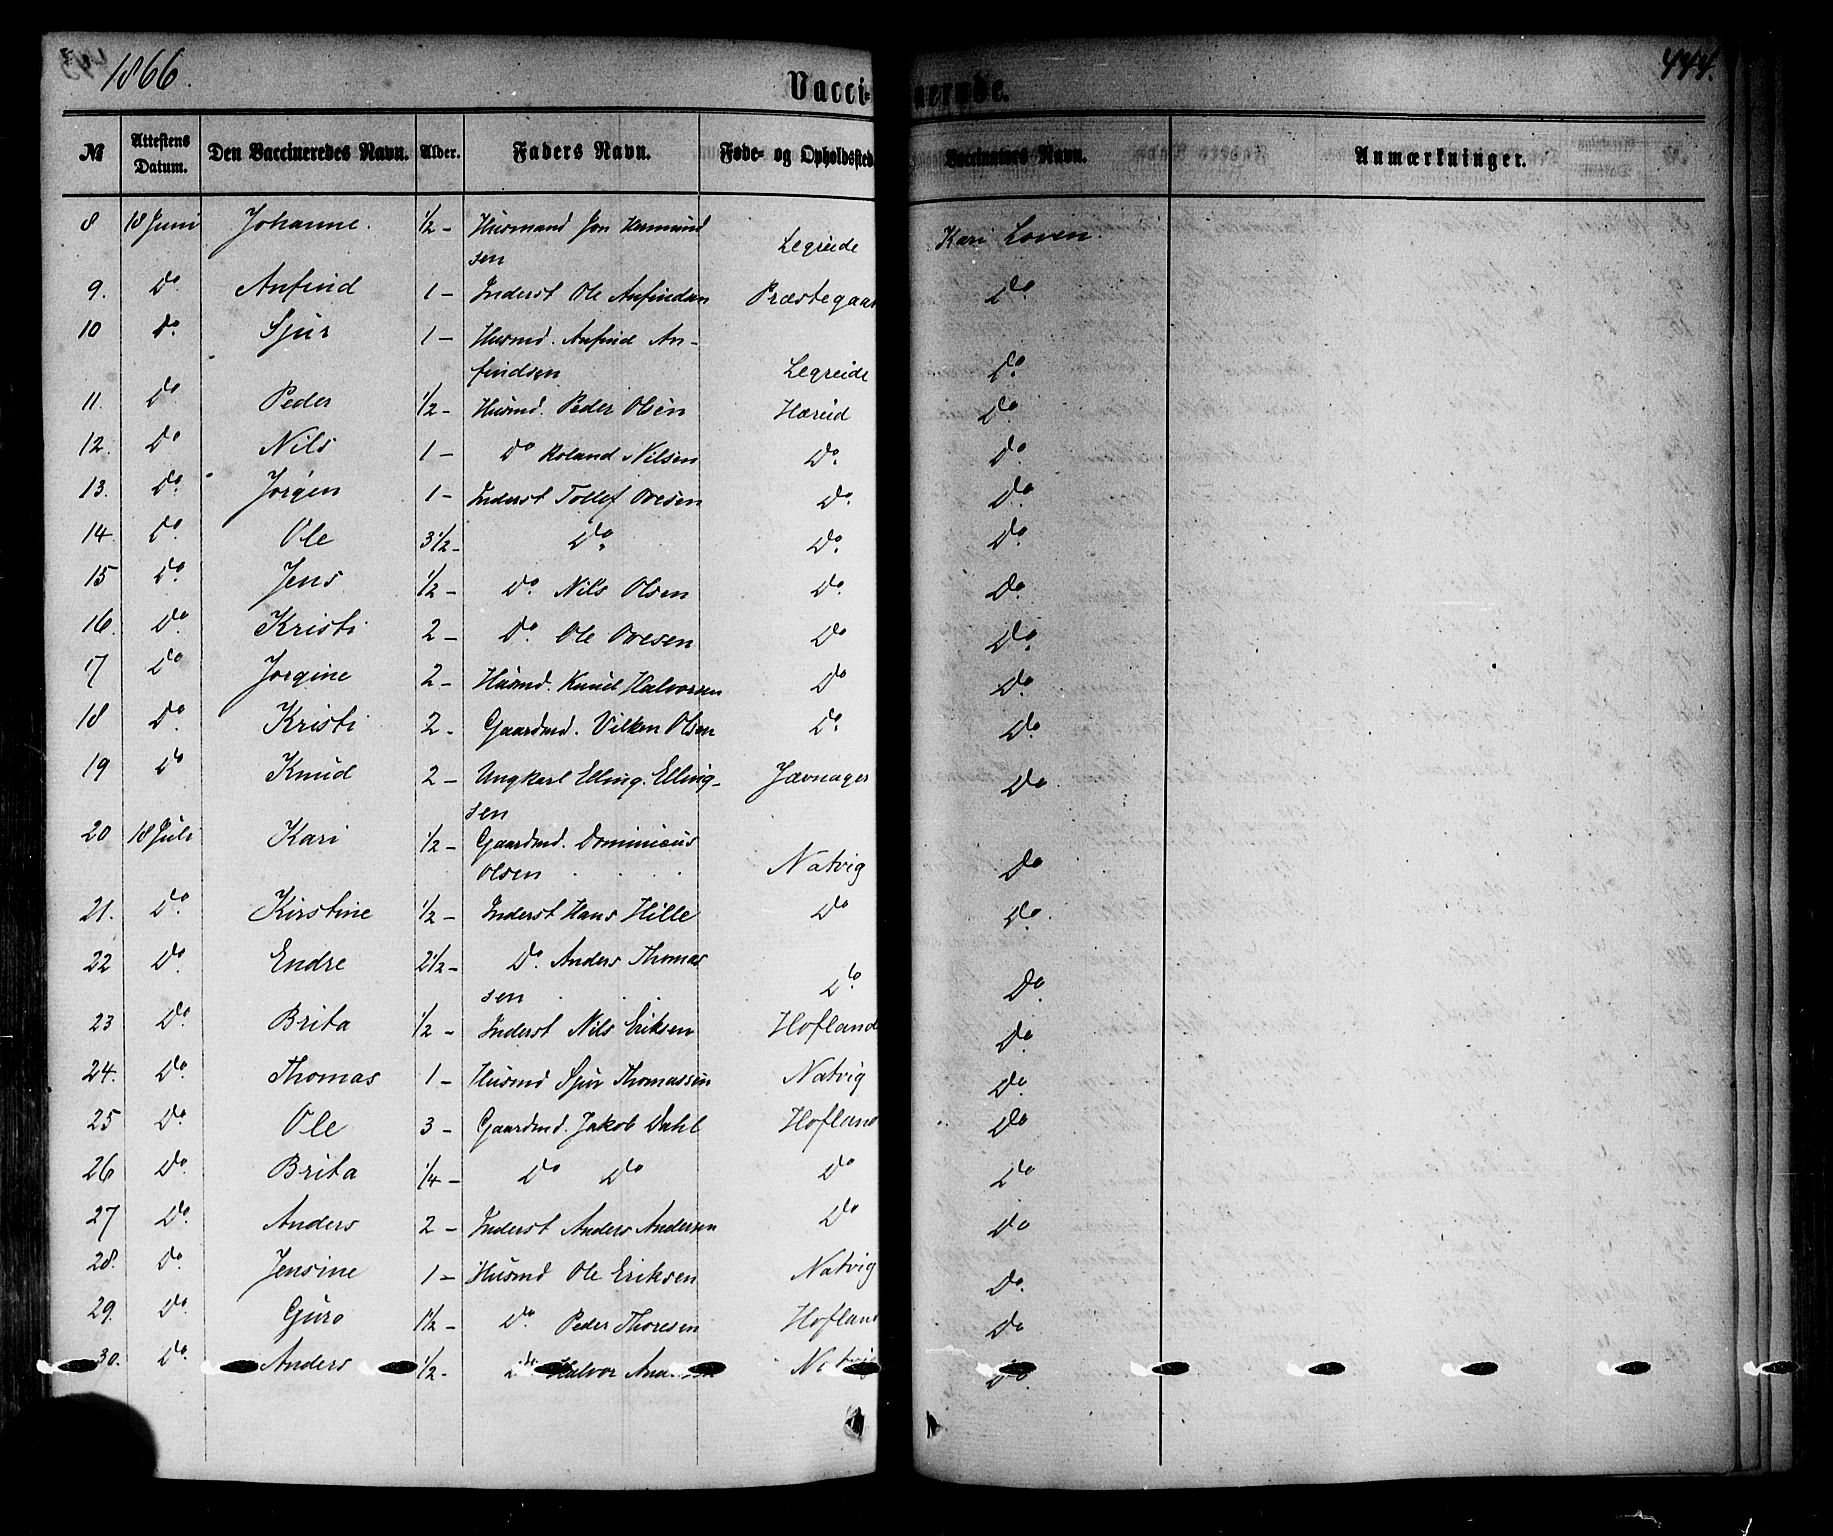 1866.
444.
Vaccinerende.
№ Attestens Datum. Den Vaccineredes Navn. Alder. Faders Navn. Føde- og Opholdssted Vaccinators Navn. Anmærkninger.
8 18 Juni Johanne. 1/2 - Husmand Jon Hermund
sen Legreide Kari Loven.
9. Do. Anfind 1 - Inderst Ole Anfindsn Præstegaar Do.
10 Do. Sjur 1 - Husmd. Anfind An-
findsen Legreide Do.
11. Do Peder 1/2 - Husmd. Peder Olsen Hæreid Do.
12. Do. Nils 1 - Do Roland Nilsen Do. Do.
13. Do. Jørgen 1 - Inderst Tollef Ovesen Do. Do.
14. Do. Ole 3 1/2 - Do. Do. Do.
15 Do. Jens 1/2 - Do. Nils Olsen Do. Do.
16. Do. Kristi 2 - Do. Ole Ovesen Do Do.
17 Do Jorgine 2 - Husmd. Knud Halvorsen Do Do.
18 Do. Kristi 2 - Gaardmd. Vilken Olsen Do. Do.
19 Do Knud 2 - Ungkarl Elling. Elling-
sen Jævnager Do.
20 18 Juli Kari 1/2 - Gaardmd. Dominicus
Olsen Natvig Do.
21. Do. Kirstine 1/2 - Inderst Hans Hille Do Do.
22 Do. Endre 2 1/2 - Do. Anders Thomas
sen Do. Do.
23 Do. Brita 1/2 - Inderst Nils Eriksen Hofland Do.
24. Do. Thomas 1 - Husmd Sjur Thomassen Natvig Do.
25 Do. Ole 3 - Gaardmd. Jakob Dahl Hofland Do
26 Do. Brita 1/4 - Do Do Do Do
27 Do. Anders 2 - Inderst Anders Andersen Do Do
28. Do. Jensine 1 - Husmd Ole Eriksen Natvig Do.
29. Do. Guro 1 1/2 - Do. Peder Thoresen Hofland Do
30. Do. Anders 1/2 - Do. Halvor Natvig Do.